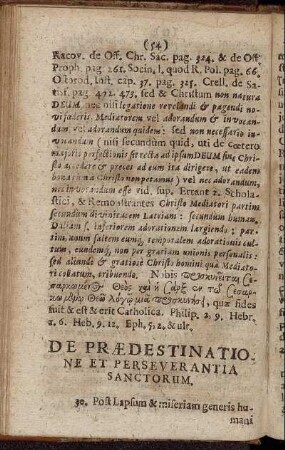 (54)
Racov. de Off. Chr. Sac. pag. 324. & de Off
Proph. pag. 261. Socin. l. quod R. Pol. pag. 66.
Ostorod. Inst. cap. 37. pag. 325. Crell. de Sa-
tisf. pag. 472. 475. sed & Christum non natura
DEUM nec nisi legatione verelandi & pagendi no-
vi fœderis Mediatorem vel adorandum & invocan-
dum, vel adorandum quidem: sed non necessario in-
vocandum (nisi secundum quid, uti de cœtero
majoris perfectionis sit recta ad ipsum DEUM sine Chri-
sto accedere & preces ad eum ita dirigere, ut eadem
bona cum à Christo non petamus) vel nec adorandum,
nec invocandum esse vid. sup. Errant 2. Schola-
stici, & Remonstrantes Christo Mediatori partim
secundum divinitatem Latriam: secundum human.
Duliam s. inferiorem adorationem largiendo: par-
tim, unum saltem eumq; temporalem adorationis cul-
tum, eundemq; non per gratiam unionis personalis:
sed aliunde & gratiose Christo homini qua Mediato-
ri collatum, tribuendo. Nobis
qua fides
fuit & est & erit Catholica. Philip. 2. 9. Hebr.
1. 6. Heb. 9. 12. Eph. 5. 2. & ult.
DE PRÆDESTINATIO-
NE ET PERSEVERANTIA
SANCTORUM.
30. Post Lapsum & miseriam generis hu-
mani